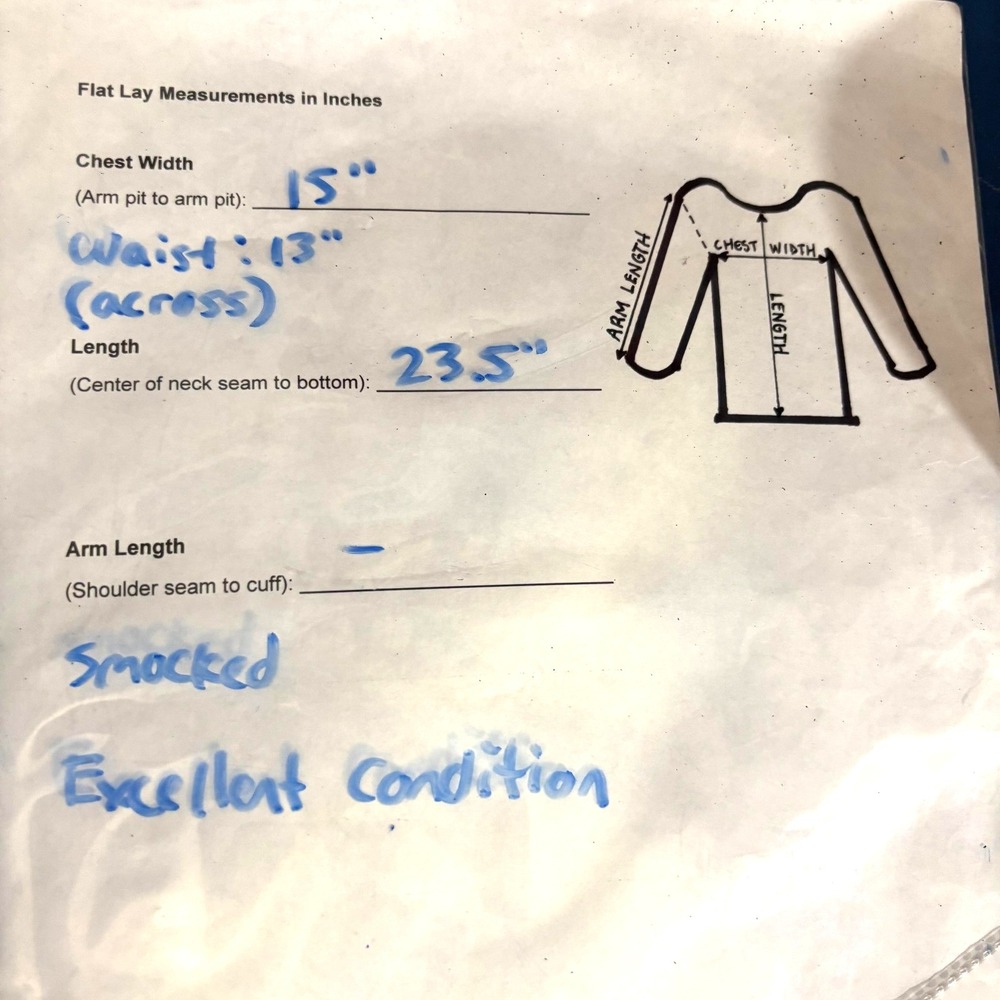 Flat Lay Measurements in Inches
Chest Width
(Arm pit to arm pit): 15"
Waist: 13"
(across)
Length
(Center of neck seam to bottom): 23.5"
ARM LENGTH
CHEST WIDTH
LENGTH
Arm Length
(Shoulder seam to cuff): -
Smocked
Excellent Condition